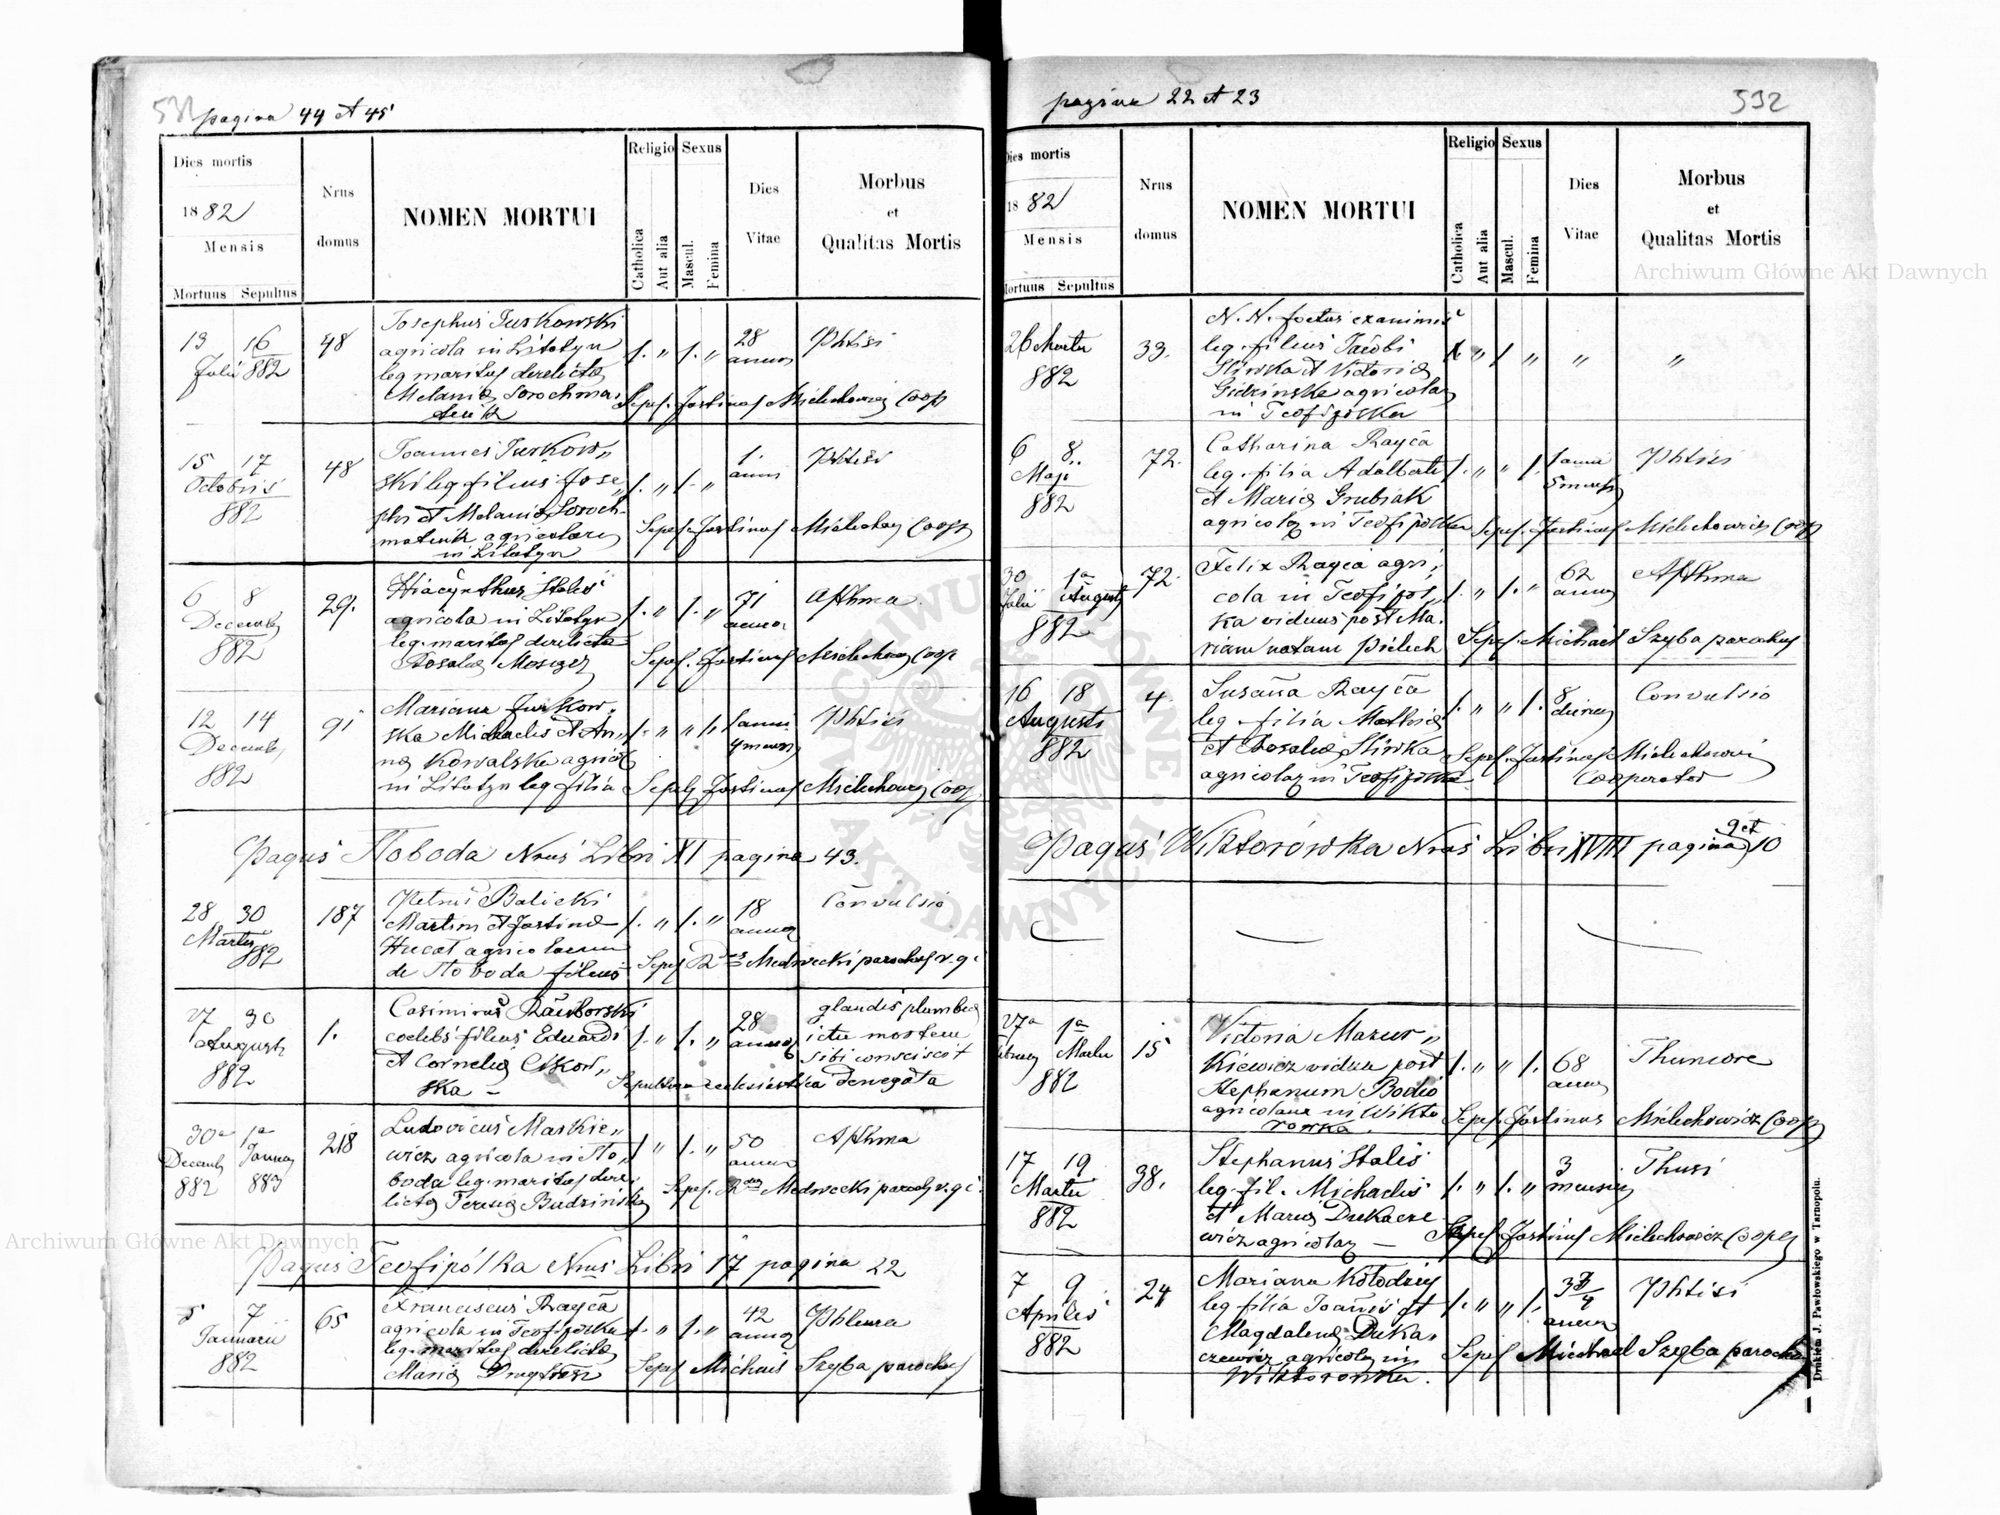 pagina 44 et 45
Dies mortis
1882
Mensis
Mortuus Sepultus
Nrus domus
NOMEN MORTUI
Religio
Catholica
Aut alia
Sexus
Mascul.
Femina
Dies Vitae
Morbus
et
Qualitas Mortis
13 16
Julii 882
48
Josephus Turkowski
agricola in Litatyn
leg. maritus derelictae
Melaniae Sorochma
1. " 1. "
28
annor
Phtisi
Sepel. Justinus Mielechowicz Coop
15 17
Octobris
882
48
Joannes Turkow„
ski leg filius Jose„
phi et Melaniae Soroch„
agricolarum
in Litatyn
1. " 1. "
1
anni
Phtisi
Sepel. Justinus Coop
6 8
Decembr
882
29.
Hiacynthus Stalis
agricola in Litatyn
leg. maritus derelictae
Rosaliae
1. " 1. "
71
annor
Asthma
Sepel. Justinus Coop
12 14
Decemb
882
91
Mariana Turkow„
ska Michaelis et An„
nae Kowalska agricol
in Litatyn leg filia
1. " " 1.
1 anni
4 mens
Phtisi
Sepel. Justinus Mielechowicz Coop.
Pagus Sloboda Nrus Libri XI pagina 43.
28 30
Martii
882
187
Petrus Balicki
Martini et Justinae
Hucał agricolarum
de Sloboda filius
1. " 1. "
18
annor
Convulsio
Sepel. Rdus Medwecki parochus r. g. c.
27 30
Augusti
882
1.
Casimirus Raciborski
coelebs filius Eduardi
et Corneliae
ska –
1. " 1. "
28
annor
glandis plumbea
ictu mortem
sibi consciscit
Sepultura ecclesiastica denegata
30a 1a
Decemb Januar
882 883
218
Ludovicus Maskie„
wicz agricola in Slo„
boda leg. maritus dere„
lictae Teresiae Budzinska
1. " 1. "
50
annor
Asthma
Sepel. Rdus Medwecki parochus r. g. c.
Pagus Teofipólka Nrus Libri 17 pagina 22
5 7
Januarii
882
65
Franciscus Rayca
agricola in Teofipolka
leg. maritus derelictae
Mariae
1. " 1. "
42
annor
Phleura
Sepel Michael Szyba parochus
pagina 22 et 23
532
Dies mortis
1882
Mensis
Mortuus Sepultus
Nrus domus
NOMEN MORTUI
Religio
Catholica
Aut alia
Sexus
Mascul.
Femina
Dies Vitae
Morbus
et
Qualitas Mortis
26 Martii
882
33.
N. N. foetus exanimis
leg. filius Jacobi
Sliwka et Victoriae
Gidzinska agricolar
in Teofipolka
1 " 1 " " "
6 8
Maji
882
72.
Catharina Rayca
leg. filia Adalberti
et Mariae Grubiak
agricolar in Teofipolka
1. " " 1.
1 anni
5 mens
Phtisi
Sepel. Justinus Mielechowicz Coop
30 1a
Julii Augusti
882
72.
Felix Rayca agri„
cola in Teofipol„
ka viduus post Ma„
riam natam Pielech
1. " 1. "
62
annor
Asthma
Sepel. Michael Szyba parochus
16 18
Augusti
882
4.
Susanna Rayca
leg. filia Mathiae
et Rosaliae Sliwka
agricolar in Teofipolka
1. " " 1.
8
dierum
Convulsio
Sepel. Justinus Mielechowicz
Cooperator
Pagus Wiktorówka Nrus Libri XVIII pagina 9 et 10
27a 1a
Martii
882
15
Victoria Mazur„
kiewicz vidua post
Stephanum Bodio
agricolam in Wikto
rowka.
1. " " 1.
68
annor
Thumore
Sepel. Justinus Mielechowicz Coop
17 19
Martii
882
38.
Stephanus Stalis
leg. fil. Michaelis
et Mariae Dukacze
wicz agricolar –
1. " 1. "
3
mensium
Thusi
Sepel Justinus Mielechowicz Cooper
7 9
Aprilis
882
24
Mariana Kołodziej
leg filia Joannis et
Magdalenae Duka„
czewicz agricolar in
Wiktorowka.
1. " " 1.
3 3/4
annor
Phtisi
Sepel Michael Szyba parochus
Drukiem J. Pawłowskiego w Tarnopolu.
Archiwum Główne Akt Dawnych
Archiwum Główne Akt Dawnych
ARCHIWUM GŁÓWNE AKT DAWNYCH